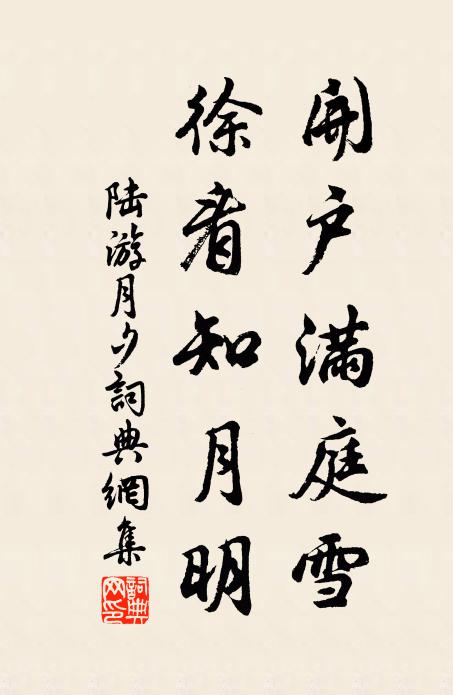 開戶滿庭雪
徐看知月明
陸游月夕詞典網集
詞典網印